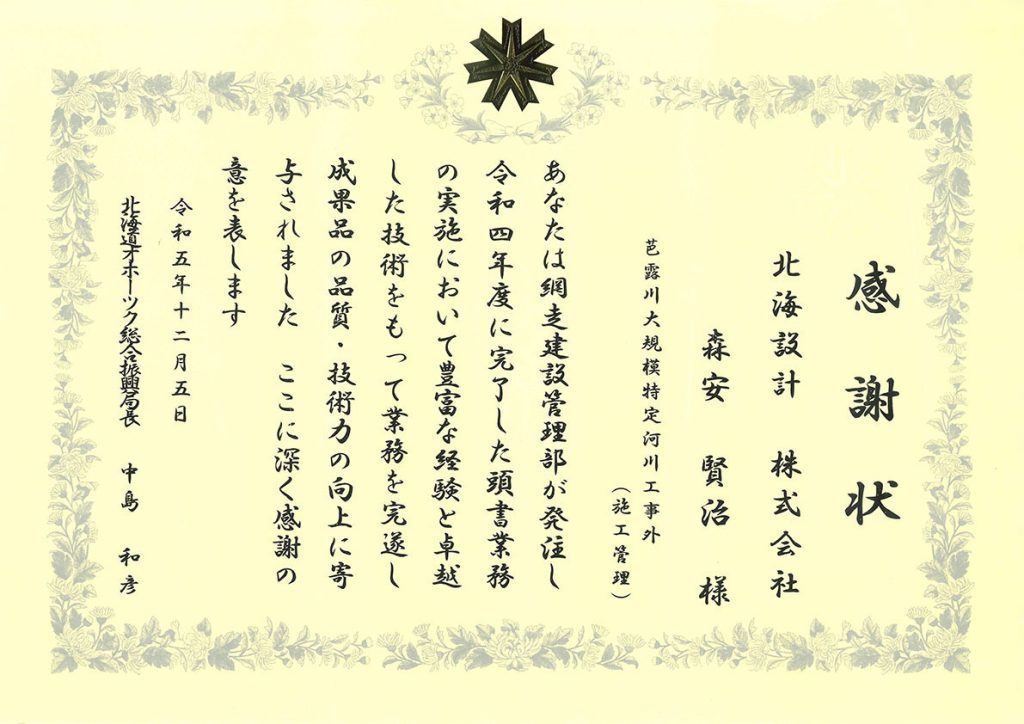 感謝状
北海設計 株式会社
森安 賢治 様
芭露川大規模特定河川工事外
(施工管理)
あなたは網走建設管理部が発注し
令和四年度に完了した頭書業務
の実施において豊富な経験と卓越
した技術をもって業務を完遂し
成果品の品質・技術力の向上に寄
与されました ここに深く感謝の
意を表します
令和五年十二月五日
北海道オホーツク総合振興局長 中島 和彦